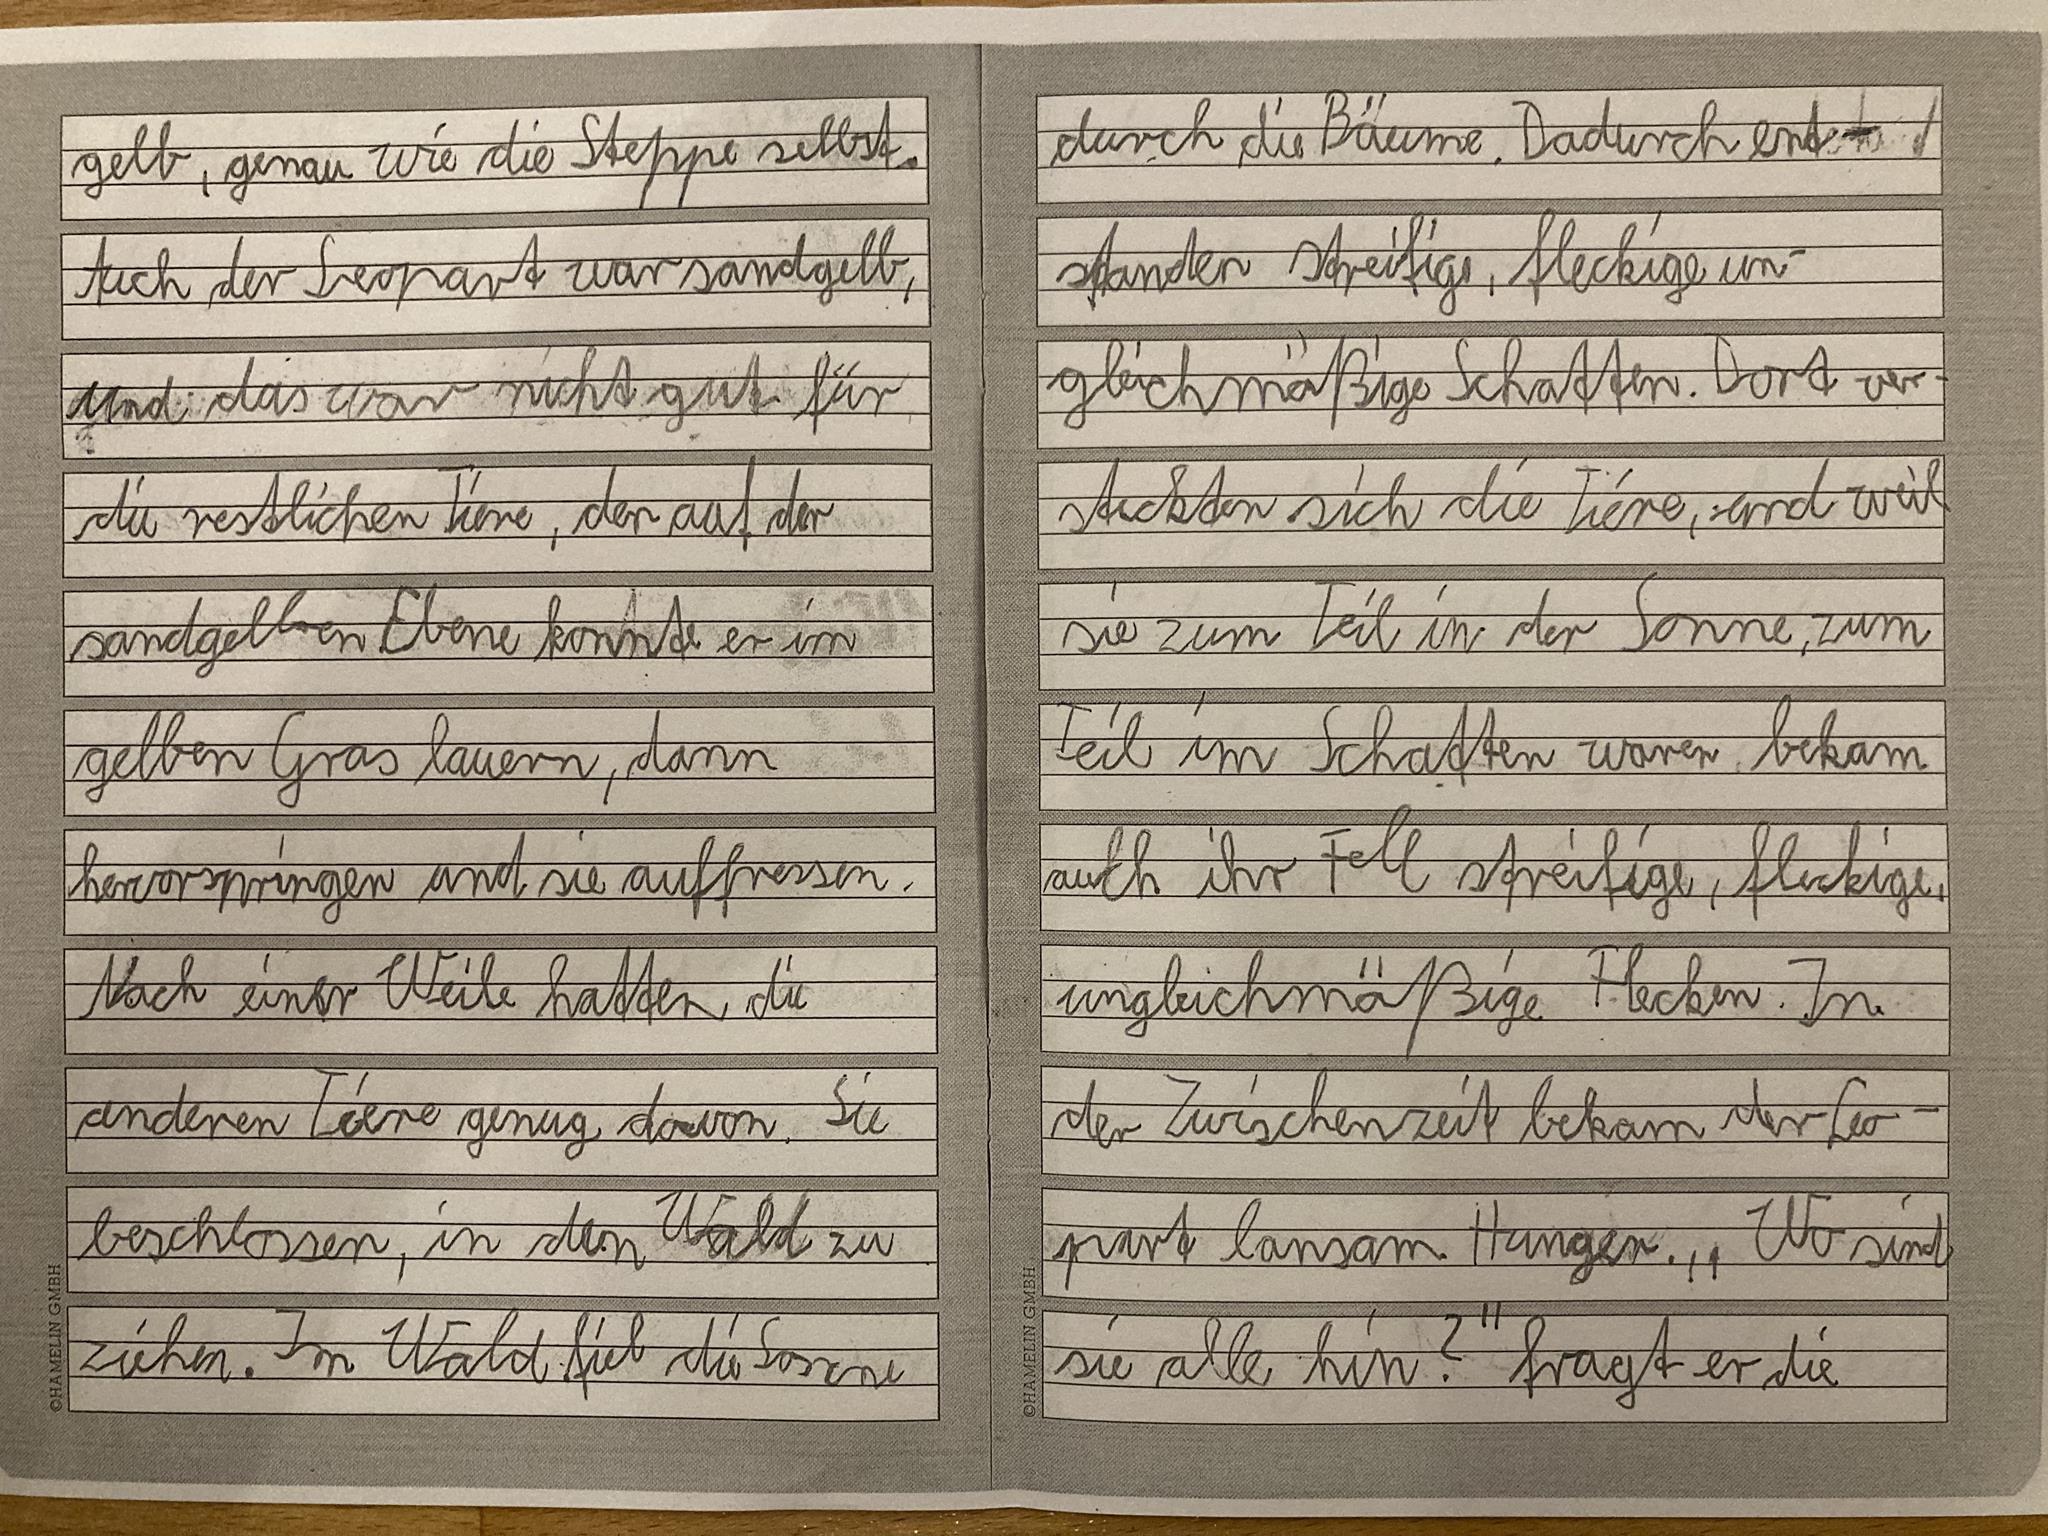 gelb, genau wie die Steppe selbst.
Auch der Leopart war sandgelb,
und das war nicht gut für
die restlichen Tiere, den auf der
sandgelben Ebene konnte er im
gelben Gras lauern, dann
hervorspringen und sie auffressen.
Nach einer Weile hatten die
anderen Tiere genug davon. Sie
beschlossen, in den Wald zu
ziehen. Im Wald fiel die Sonne
©HAMELIN GMBH
durch die Bäume. Dadurch ent
standen streifige, fleckige un-
gleichmäßige Schatten. Dort ver-
steckten sich die Tiere, und weil
sie zum Teil in der Sonne, zum
Teil im Schatten waren bekam
auch ihr Fell streifige, fleckige,
ungleichmäßige Flecken. In
der Zwischenzeit bekam der Leo-
part lansam Hunger. „Wo sind
sie alle hin?" fragt er die
©HAMELIN GMBH